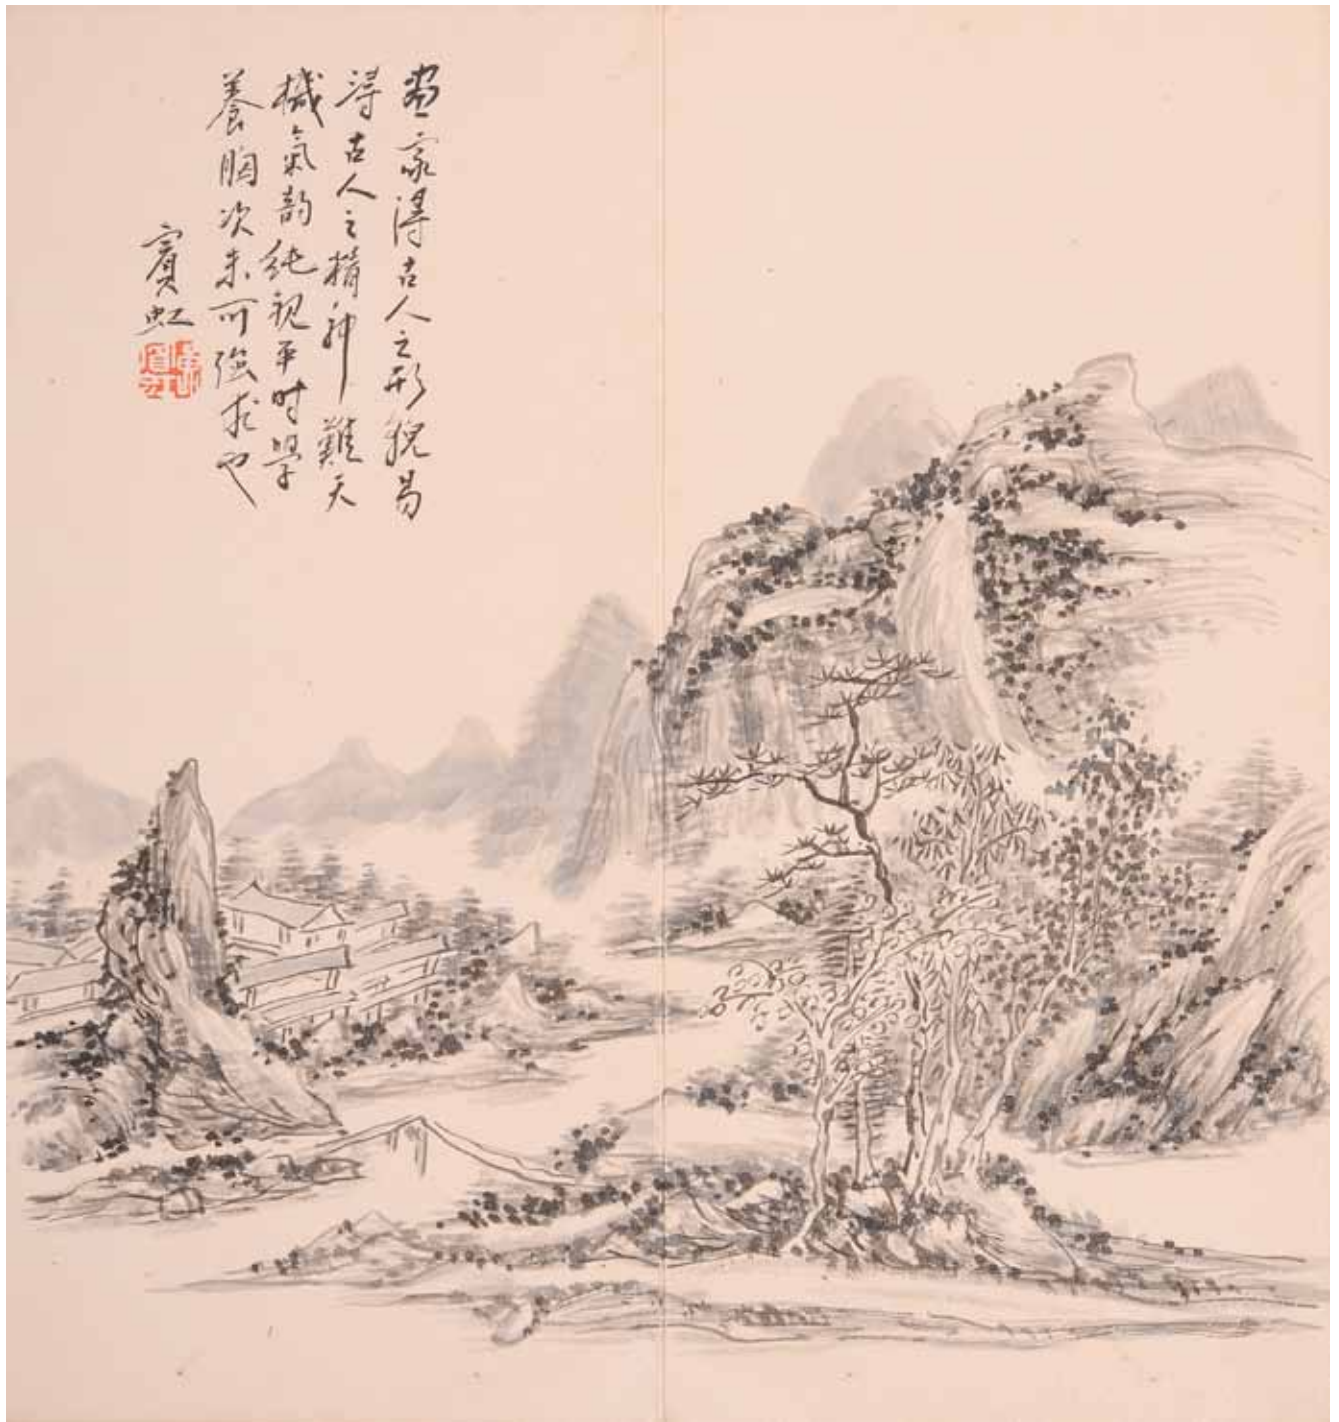 畫家得古人之形貌易
得古人之精神難天
機氣韵純視平時學
養胸次未可強求也
賓虹